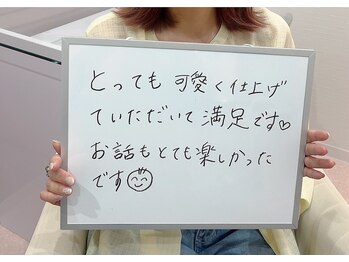 とっても可愛く仕上げ
ていただいて満足です♡
お話もとても楽しかった
です